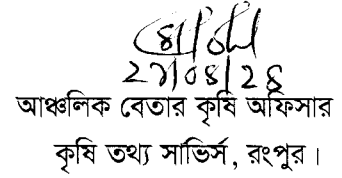 ২৭/০৪/২৪
আঞ্চলিক বেতার কৃষি অফিসার
কৃষি তথ্য সার্ভিস, রংপুর।